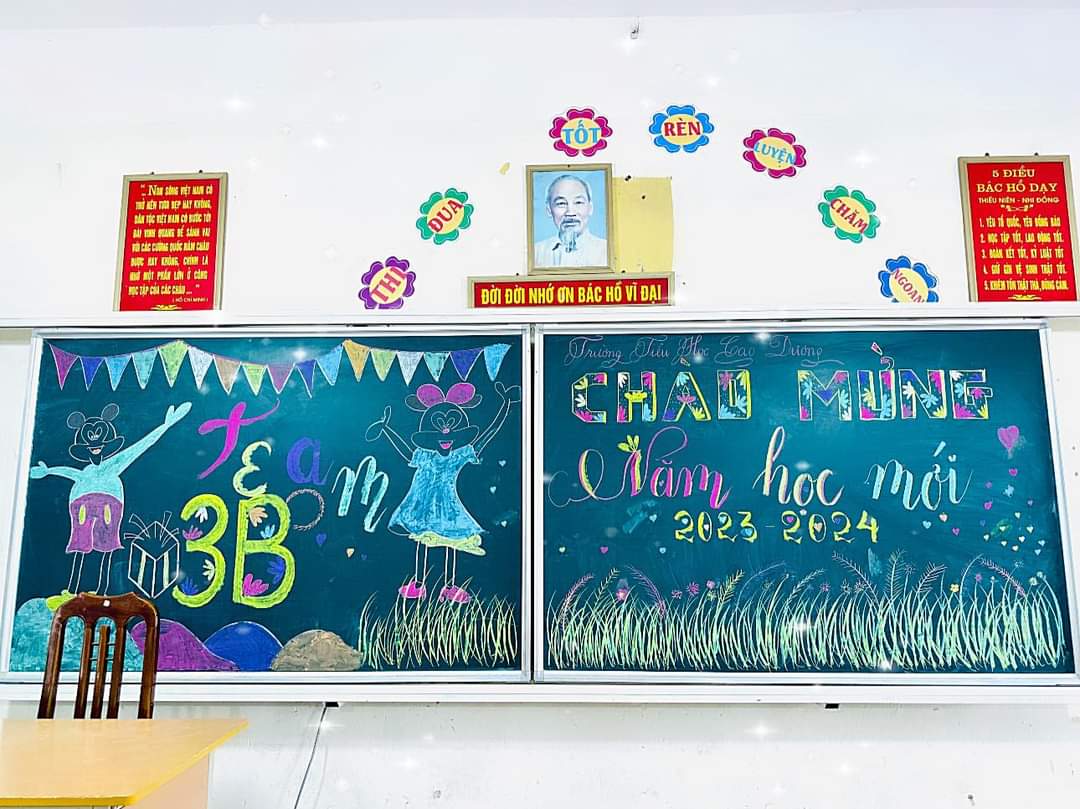 THI ĐUA TỐT RÈN LUYỆN CHĂM NGOAN
"... NON SÔNG VIỆT NAM CÓ
TRỞ NÊN TƯƠI ĐẸP HAY KHÔNG,
DÂN TỘC VIỆT NAM CÓ BƯỚC TỚI
ĐÀI VINH QUANG ĐỂ SÁNH VAI
VỚI CÁC CƯỜNG QUỐC NĂM CHÂU
ĐƯỢC HAY KHÔNG, CHÍNH LÀ
NHỜ MỘT PHẦN LỚN Ở CÔNG
HỌC TẬP CỦA CÁC CHÁU ..."
( HỒ CHÍ MINH )
ĐỜI ĐỜI NHỚ ƠN BÁC HỒ VĨ ĐẠI
5 ĐIỀU
BÁC HỒ DẠY
THIẾU NIÊN - NHI ĐỒNG
1. YÊU TỔ QUỐC, YÊU ĐỒNG BÀO
2. HỌC TẬP TỐT, LAO ĐỘNG TỐT.
3. ĐOÀN KẾT TỐT, KỶ LUẬT TỐT
4. GIỮ GÌN VỆ SINH THẬT TỐT.
5. KHIÊM TỐN THẬT THÀ, DŨNG CẢM.
Team
3B
Trường Tiểu Học Cao Dương
CHÀO MỪNG
Năm học mới
2023-2024